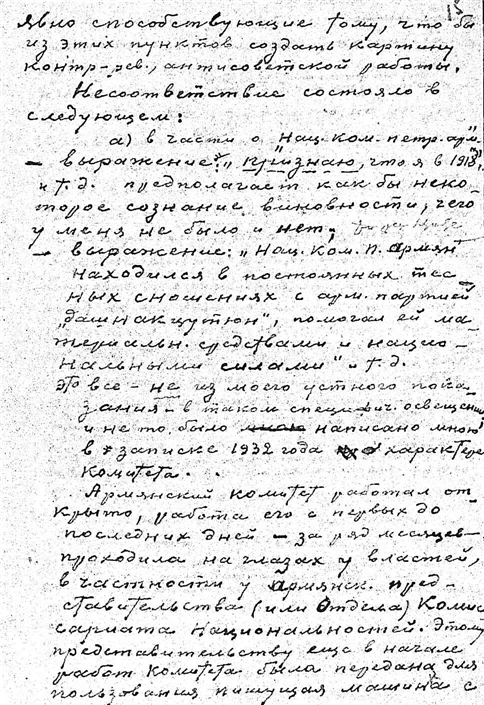 15
явно способствующие тому, что бы
из этих пунктов создать картину
контр-рев., антисоветской работы.
Несоответствие состояло в
следующем:
а) в части о Нац. ком. петр. арм.
– выражение: "признаю, что я в 1918,"
и т.д. предполагает как бы неко-
торое сознание виновности, чего
у меня не было и нет;
– выражение: "Нац. Ком. П. Армян
находился в постоянных тес-
ных сношениях с арм. партией
"Дашнакцутюн", помогал ей ма-
териальн. средствами и нацио-
нальными силами" и т.д.
это все – не из моего устного пока-
зания – в таком специфич. освещении
и не то было написано мною
в записке 1932 года о характере
Комитета.
Армянский комитет работал от-
крыто, работа его с первых до
последних дней – за ряд месяцев –
проходила на глазах у властей,
в частности у Армянск. пред-
ставительства (или Отдела) Комис
сариата Национальностей. Этому
представительству еще в начале
работ Комитета была передана для
пользования пишущая машина с